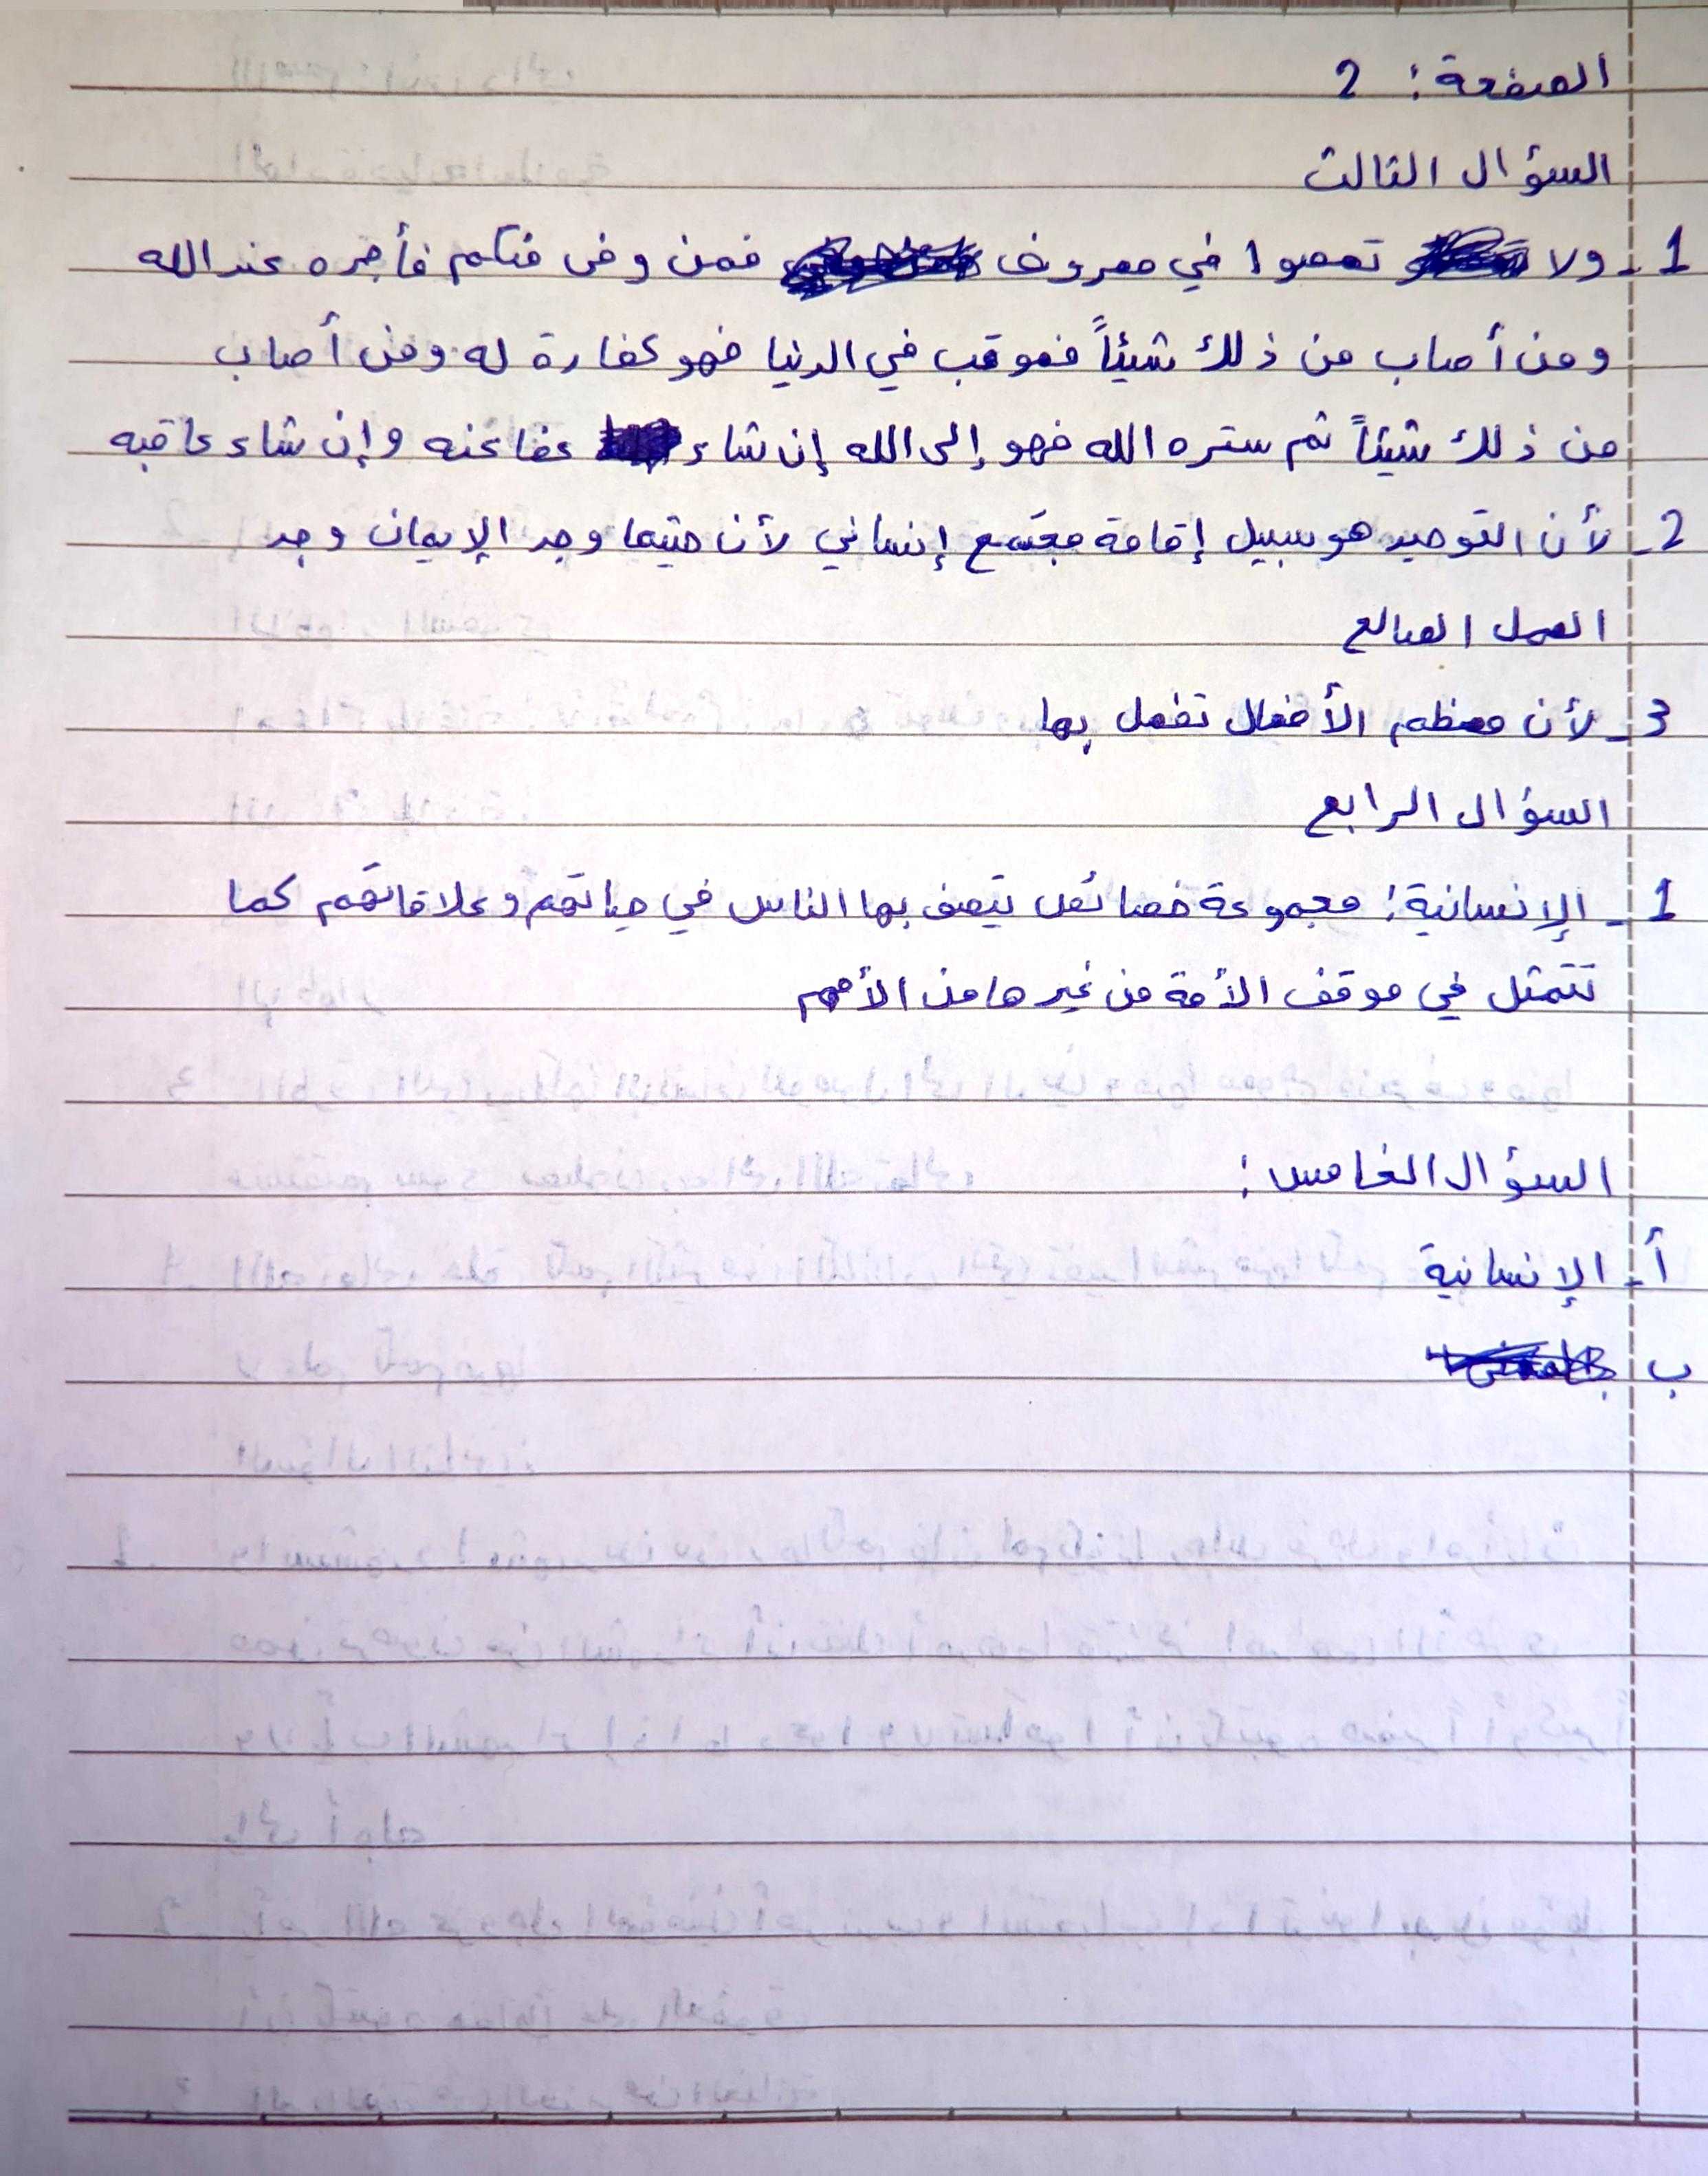 الصفحة: 2
السؤال الثالث
1- ولا تعصوا في معروف فمن وفى منكم فأجره عند الله
ومن أصاب من ذلك شيئاً فعوقب في الدنيا فهو كفارة له ومن أصاب
من ذلك شيئاً ثم ستره الله فهو إلى الله إن شاء عفا عنه وإن شاء عاقبه
2- لأن التوحيد هو سبيل إقامة مجتمع إنساني لأن حيثما وجد الإيمان وجد
العمل الصالح
3- لأن معظم الأفعال تفعل بها
السؤال الرابع
1- الإنسانية: مجموعة خصائص يتصف بها الناس في حياتهم وعلاقاتهم كما
تتمثل في موقف الأمة من غيرها من الأمم
السؤال الخامس:
أ- الإنسانية
ب